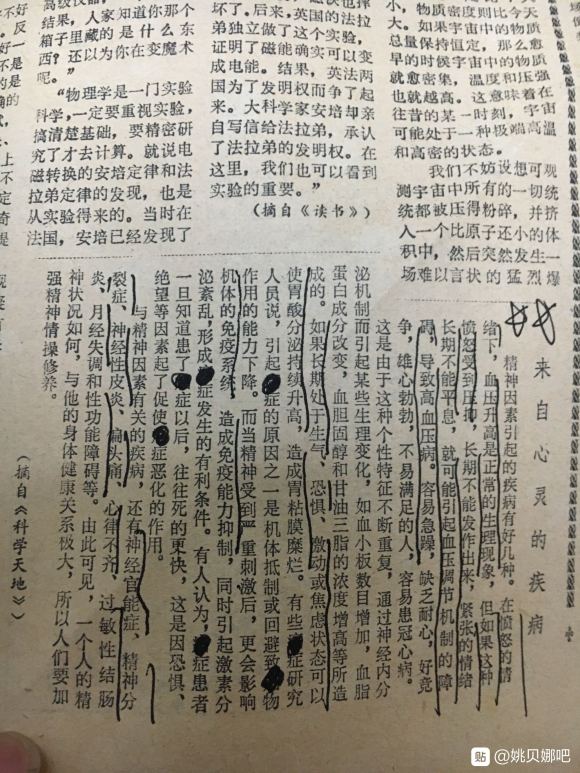 结果，人家知道你那个
箱子里藏的是什么东
西？还以为你在变魔术
呢。”
“物理学是一门实验
科学，一定要重视实验，
搞清楚基础，要精密研
究了才去计算。就说电
磁转换的安培定律和法
拉弟定律的发现，也是
从实验得来的。当时在
法国，安培已经发现了
坏了。后来，英国的法拉
弟独立做了这个实验，
证明了磁能确实可以变
成电能。结果，英法两
国为了发明权而争了起
来。大科学家安培却亲
自写信给法拉弟，承认
了法拉弟的发明权。在
这里，我们也可以看到
实验的重要。”
（摘自《读书》）
小，物质密度则比今天
大。如果宇宙中的物质
总量保持恒定，那么愈
早的时候宇宙中的物质
就愈密集，温度和压强
也就越高。这意味着在
往昔的某一时刻，宇宙
可能处于一种极端高温
和高密的状态。
我们不妨设想可观
测宇宙中所有的一切统
统都被压得粉碎，并挤
入一个比原子还小的体
积中，然后突然发生一
场难以言状的猛烈爆
来自心灵的疾病
精神因素引起的疾病有好几种。在愤怒的情
绪下，血压升高是正常的生理现象，但如果这种
愤怒受到压抑，长期不能发作出来，紧张的情绪
长期不能平息，就可能引起血压调节机制的障
碍，导致高血压病。容易急躁，缺乏耐心，好竞
争，雄心勃勃，不易满足的人，容易患冠心病。
这是由于这种个性特征不断重复，通过神经内分
泌机制而引起某些生理变化，如血小板数目增加，血脂
蛋白成分改变，血胆固醇和甘油三脂的浓度增高等所造
成的。如果长期处于生气、恐惧、激动或焦虑状态可以
使胃酸分泌持续升高，造成胃粘膜糜烂。有些症研究
人员说，引起症的原因之一是机体抵制或回避致物
作用的能力下降。而当精神受到严重刺激后，更会影响
机体的免疫系统，造成免疫能力抑制，同时引起激素分
泌紊乱，形成症发生的有利条件。有人认为，症患者
一旦知道患了症以后，往往死的更快，这是因恐惧、
绝望等因素起了促使症恶化的作用。
与精神因素有关的疾病，还有神经官能症、精神分
裂症、神经性皮炎、偏头痛、心律不齐、过敏性结肠
炎、月经失调和性功能障碍等。由此可见，一个人的精
神状况如何，与他的身体健康关系极大，所以人们要加
强精神情操修养。
（摘自《科学天地》）
贴 @姚贝娜吧